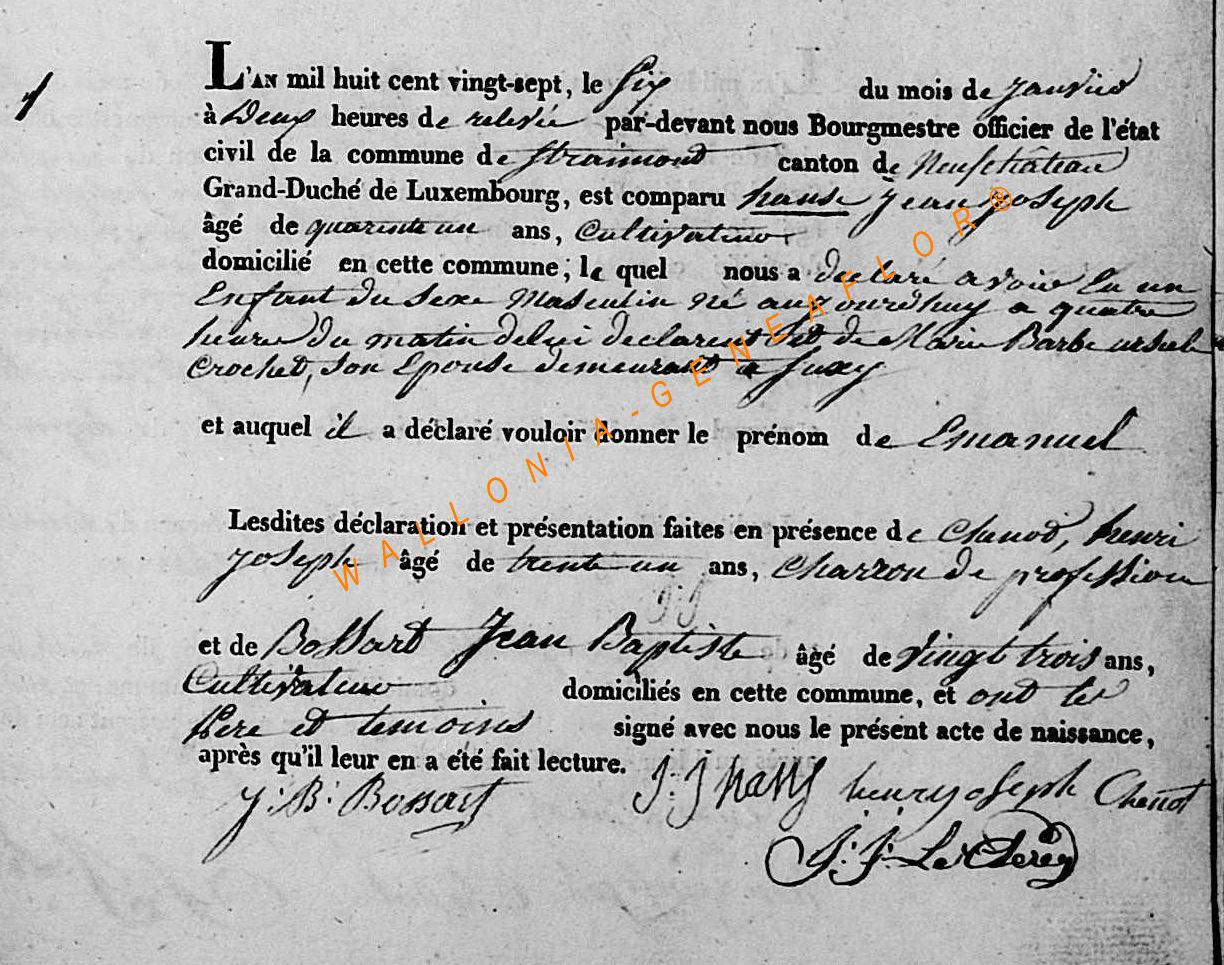 1
L'AN mil huit cent vingt-sept, le Six du mois de janvier
à Deux heures de relevée par-devant nous Bourgmestre officier de l'état
civil de la commune de Straimont canton de Neufchâteau
Grand-Duché de Luxembourg, est comparu hanse Jean joseph
âgé de quarente un ans, Cultivateur
domicilié en cette commune; le quel nous a declaré avoir Eu un
Enfant du Sexe Masculin né aujourdhuy a quatre
heure du matin de lui declarent et de Marie Barbe ursule
Crochet, Son Epouse demeurant a Suxy
et auquel il a déclaré vouloir donner le prénom de Emanuel
Lesdites déclaration et présentation faites en présence de Chenot, henri
joseph âgé de trente un ans, Charron de profession
et de Bossart Jean Baptiste âgé de Vingt trois ans,
Cultivateur domiciliés en cette commune, et ont les
Pere et temoins signé avec nous le présent acte de naissance,
après qu'il leur en a été fait lecture.
J: B: Bossart J: J hans henry joseph Chenot
J: J: Le Clere
WALLONIA-GENEAFLOR®